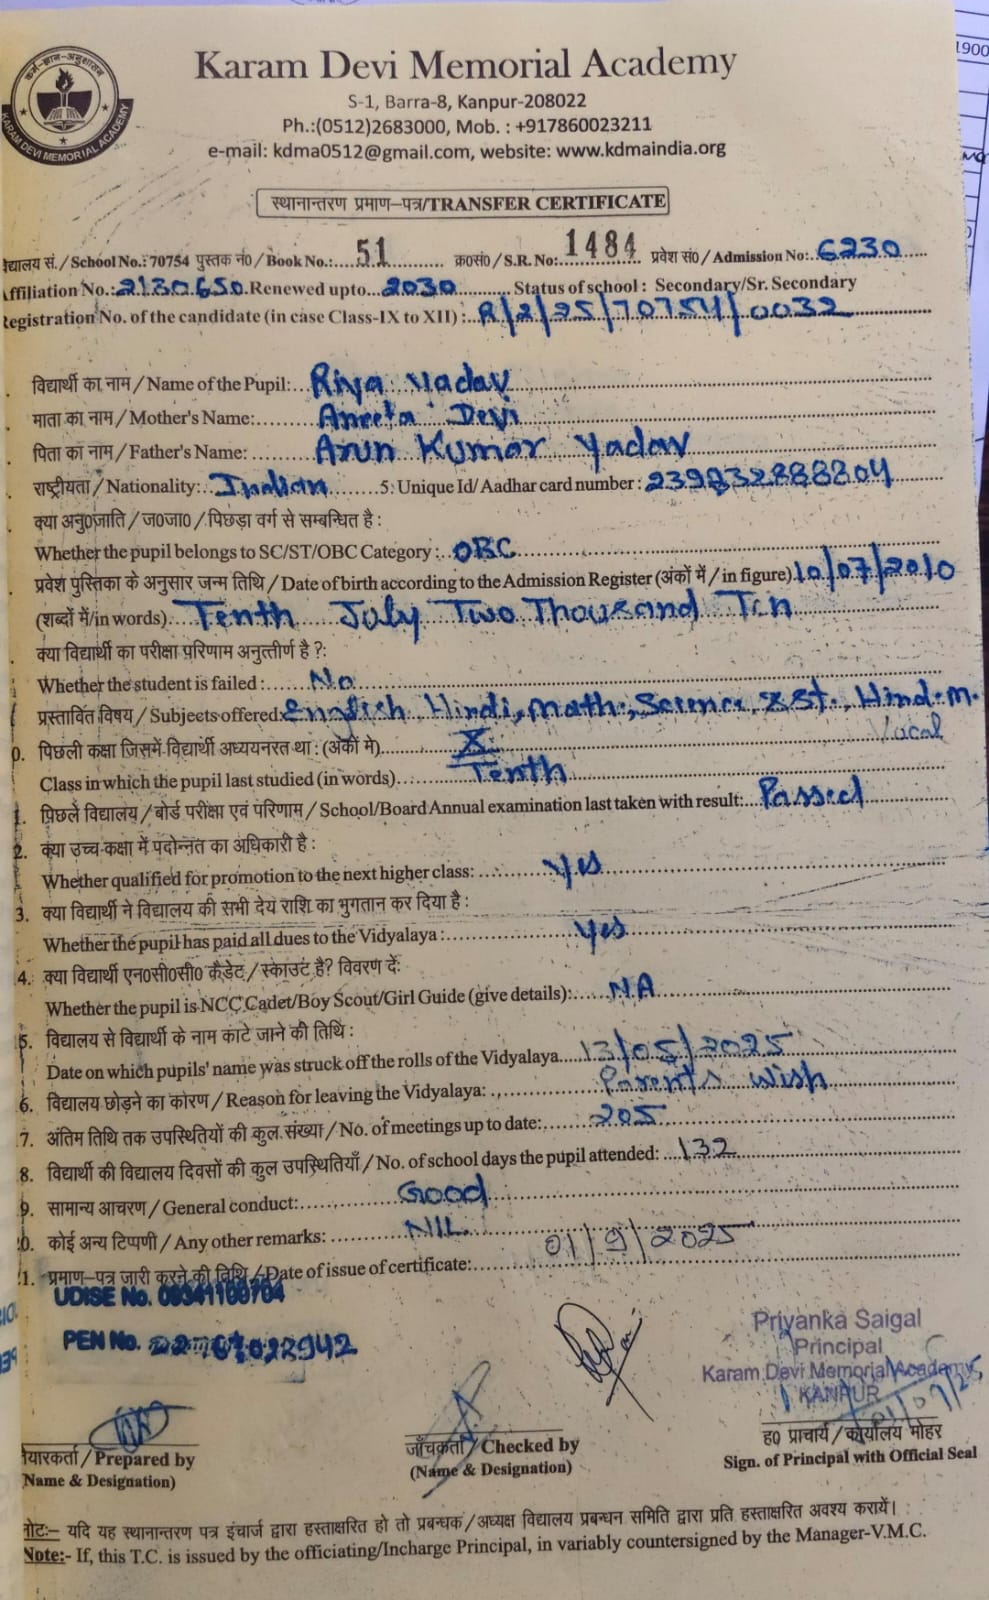 कर्म-ज्ञान-अनुशासन
KARAM DEVI MEMORIAL ACADEMY
Karam Devi Memorial Academy
S-1, Barra-8, Kanpur-208022
Ph.:(0512)2683000, Mob. : +917860023211
e-mail: kdma0512@gmail.com, website: www.kdmaindia.org
स्थानान्तरण प्रमाण-पत्र/TRANSFER CERTIFICATE
द्यालय सं./ School No.: 70754 पुस्तक नं0/Book No.: 51 क्र0सं0/S.R. No: 1484 प्रवेश सं0/Admission No: 6230
Affiliation No.: 2130650 Renewed upto 2030 Status of school : Secondary/Sr. Secondary
Registration No. of the candidate (in case Class-IX to XII) : R/2/25/70754/0032
विद्यार्थी का नाम / Name of the Pupil: Riya Yadav
माता का नाम / Mother's Name: Aneeta Devi
पिता का नाम / Father's Name: Arun Kumar Yadav
राष्ट्रीयता / Nationality: Indian 5: Unique Id/ Aadhar card number :
क्या अनु0जाति / ज0जा0 / पिछड़ा वर्ग से सम्बन्धित है :
Whether the pupil belongs to SC/ST/OBC Category : OBC
प्रवेश पुस्तिका के अनुसार जन्म तिथि / Date of birth according to the Admission Register (अंकों में / in figure) 10/07/2010
(शब्दों में/in words) Tenth July Two Thousand Ten
क्या विद्यार्थी का परीक्षा परिणाम अनुत्तीर्ण है ?:
Whether the student is failed : No
प्रस्तावित विषय / Subjects offered: English, Hindi, Math., Science, S.St., Hind. M.
Vocal
0. पिछली कक्षा जिसमें विद्यार्थी अध्ययनरत था : (अंकों मे) X
Class in which the pupil last studied (in words) Tenth
1. पिछले विद्यालय / बोर्ड परीक्षा एवं परिणाम / School/Board Annual examination last taken with result: Passed
2. क्या उच्च कक्षा में पदोन्नत का अधिकारी है :
Whether qualified for promotion to the next higher class: Yes
3. क्या विद्यार्थी ने विद्यालय की सभी देय राशि का भुगतान कर दिया है :
Whether the pupil has paid all dues to the Vidyalaya : Yes
4. क्या विद्यार्थी एन0सी0सी0 कैडेट / स्काउट है? विवरण दें:
Whether the pupil is NCC Cadet/Boy Scout/Girl Guide (give details): NA
5. विद्यालय से विद्यार्थी के नाम काटे जाने की तिथि :
Date on which pupils' name was struck off the rolls of the Vidyalaya 13/05/2025
6. विद्यालय छोड़ने का कारण / Reason for leaving the Vidyalaya: Parent's Wish
7. अंतिम तिथि तक उपस्थितियों की कुल संख्या / No. of meetings up to date: 205
8. विद्यार्थी की विद्यालय दिवसों की कुल उपस्थितियाँ / No. of school days the pupil attended: 132
9. सामान्य आचरण / General conduct: Good
0. कोई अन्य टिप्पणी / Any other remarks: NIL
1. प्रमाण-पत्र जारी करने की तिथि / Date of issue of certificate: 01/9/2025
UDISE No.
PEN No.
Priyanka Saigal
Principal
Karam Devi Memorial Academy
KANPUR
तैयारकर्ता / Prepared by
(Name & Designation)
जाँचकर्ता / Checked by
(Name & Designation)
ह0 प्राचार्य / कार्यालय मोहर
Sign. of Principal with Official Seal
नोट:- यदि यह स्थानान्तरण पत्र इंचार्ज द्वारा हस्ताक्षरित हो तो प्रबन्धक / अध्यक्ष विद्यालय प्रबन्धन समिति द्वारा प्रति हस्ताक्षरित अवश्य करायें।
Note:- If, this T.C. is issued by the officiating/Incharge Principal, in variably countersigned by the Manager-V.M.C.